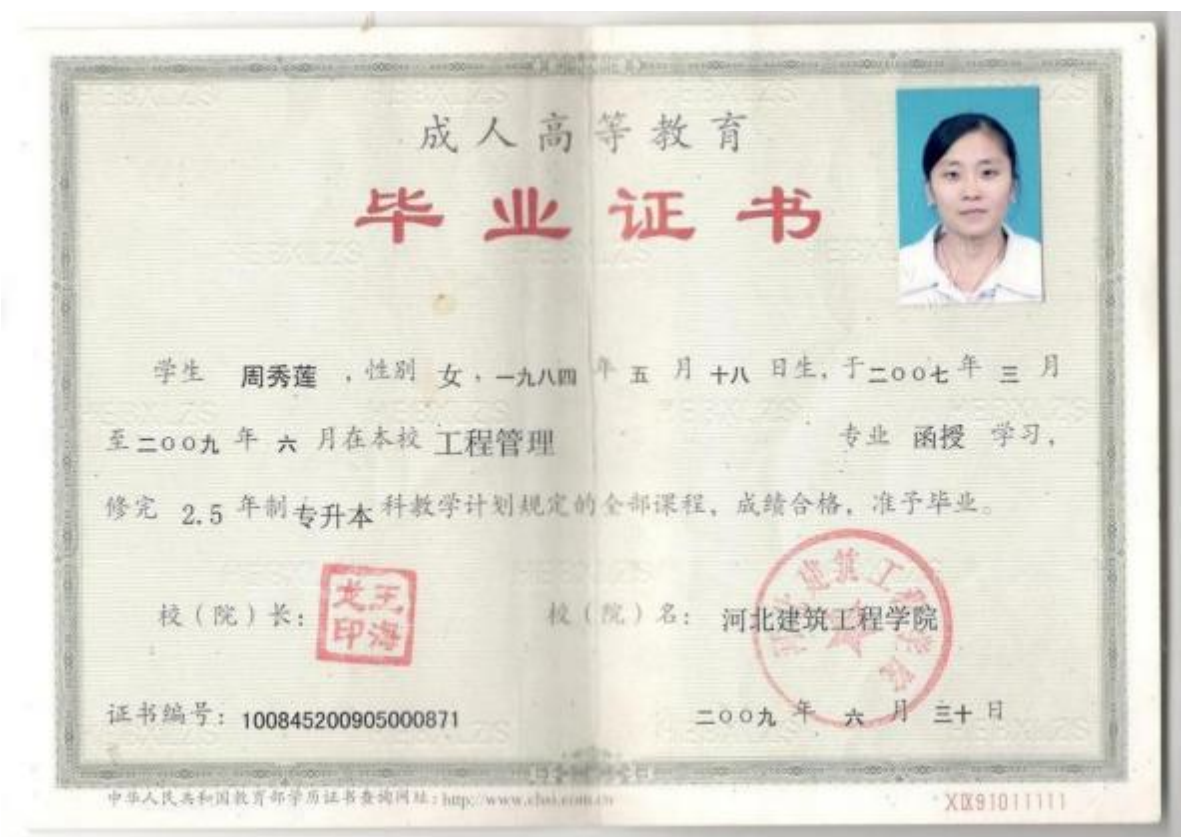 成人高等教育
毕业证书
学生 周秀莲 ，性别 女，一九八四 年 五 月 十八 日生，于二〇〇七 年 三 月
至二〇〇九 年 六 月在本校 工程管理 专业 函授 学习，
修完 2.5 年制 专升本 科教学计划规定的全部课程，成绩合格，准予毕业。
校（院）长： 王海龙印
校（院）名： 河北建筑工程学院
河北建筑工程学院
证书编号：100845200905000871
二〇〇九 年 六 月 三十 日
中华人民共和国教育部学历证书查询网址：http://www.chsi.com.cn
XIX91011111
HEBXLZS